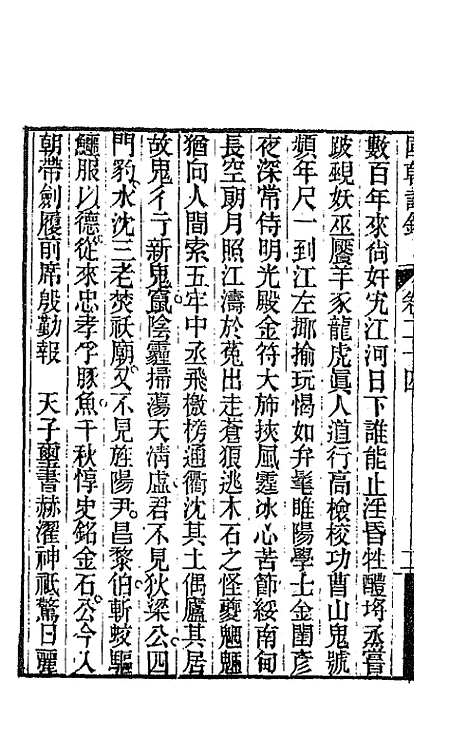 國朝詩錄 卷二十四 二
數百年來尙奸宄江河日下誰能止淫昏牲醴将烝嘗
跛覡妖巫饜羊豕龍虎眞人道行高檢校功曹山鬼號
頻年尺一到江左揶揄玩愒如弁髦睢陽學士金閨彥
夜深常侍明光殿金符大斾挾風霆冰心苦節綏南甸
長空朗月照江濤於菟出走蒼狼逃木石之怪夔魍魎
猶向人間索五牢中丞飛檄榜通衢沈其土偶廬其居
故鬼彳亍新鬼竄陰霾掃蕩天淸虛君不見狄梁公四
門豹水沈三老焚祅廟又不見旌陽尹昌黎伯斬蛟驅
鱷服以德從來忠孝孚豚魚千秋惇史銘金石公今入
朝帶劍履前席殷勤報 天子璽書赫濯神祇驚日麗